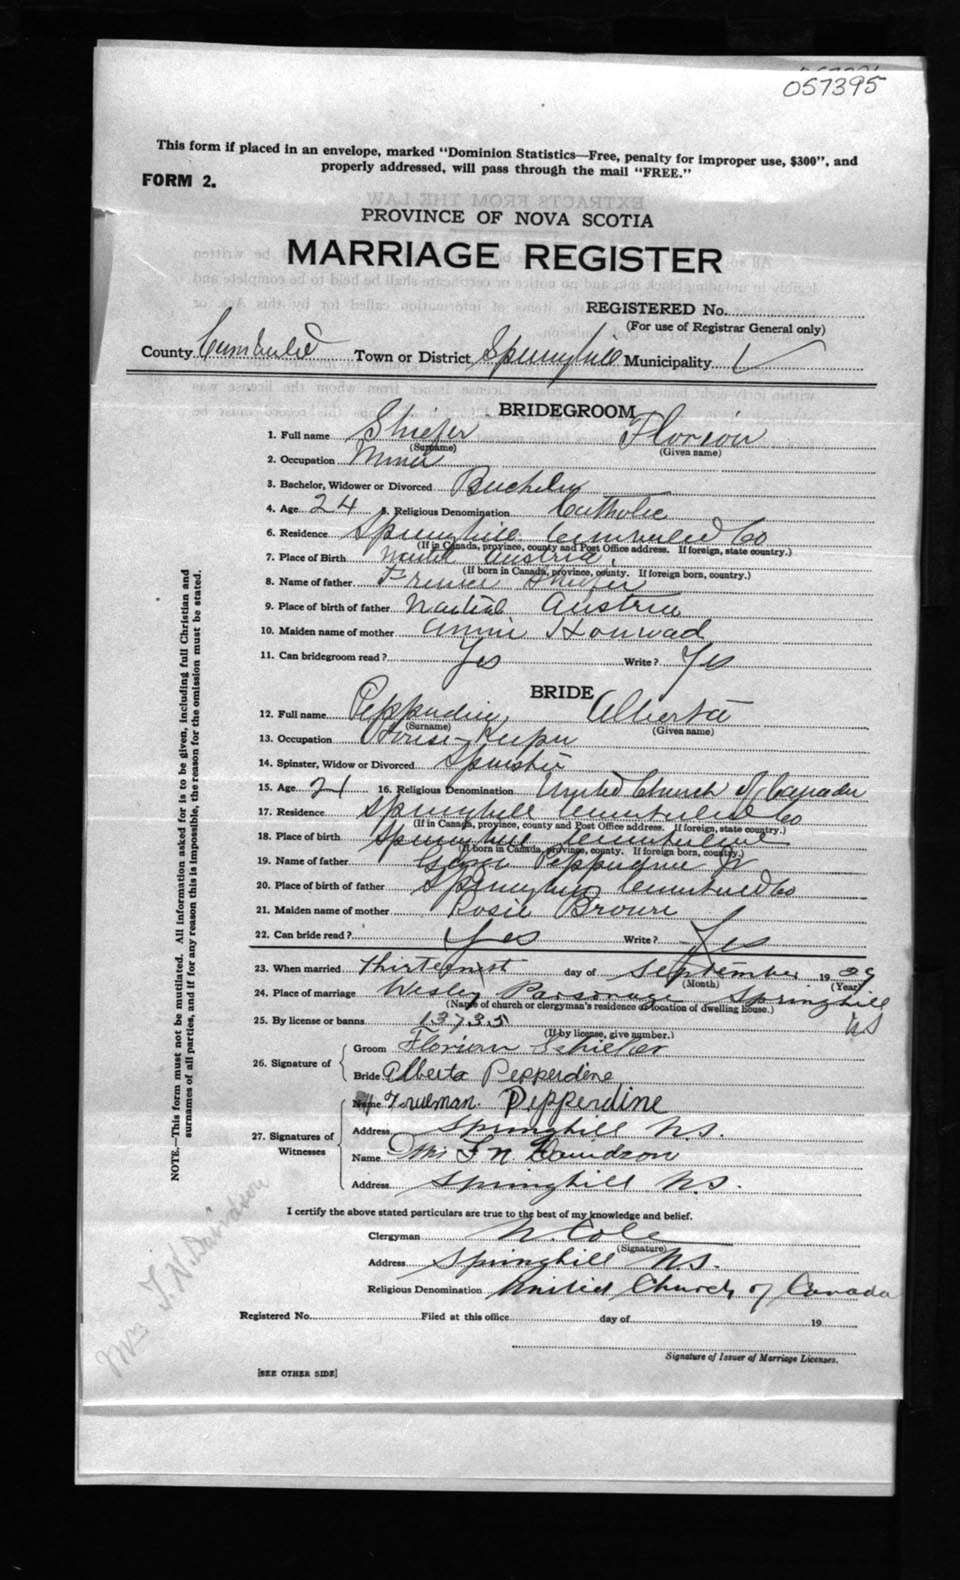 057395
This form if placed in an envelope, marked "Dominion Statistics—Free, penalty for improper use, $300", and
properly addressed, will pass through the mail "FREE."
FORM 2.
PROVINCE OF NOVA SCOTIA
MARRIAGE REGISTER
REGISTERED No.
(For use of Registrar General only)
County Town or District Springhill Municipality
BRIDEGROOM
1. Full name Florian
(Surname) (Given name)
2. Occupation Miner
3. Bachelor, Widower or Divorced Bachelor
4. Age 24 5. Religious Denomination Catholic
6. Residence Springhill Co
(If in Canada, province, county and Post Office address. If foreign, state country.)
7. Place of Birth Austria
(If born in Canada, province, county. If foreign born, country.)
8. Name of father
9. Place of birth of father Austria
10. Maiden name of mother Annie
11. Can bridegroom read? Yes Write? Yes
BRIDE
12. Full name Alberta
(Surname) (Given name)
13. Occupation House-Keeper
14. Spinster, Widow or Divorced Spinster
15. Age 21 16. Religious Denomination United Church of Canada
17. Residence Springhill Co
(If in Canada, province, county and Post Office address. If foreign, state country.)
18. Place of birth Springhill
(If born in Canada, province, county. If foreign born, country.)
19. Name of father
20. Place of birth of father Springhill Co
21. Maiden name of mother Rosie Brown
22. Can bride read? Yes Write? Yes
23. When married day of September 1929
(Month) (Year)
24. Place of marriage Wesley Parsonage Springhill
(Name of church or clergyman's residence or location of dwelling house.)
NS
25. By license or banns 13735
(If by license, give number.)
26. Signature of
Groom Florian
Bride Alberta Pepperdine
27. Signatures of
Witnesses
Name Trueman Pepperdine
Address Springhill N.S.
Name Mrs T N Davidson
Address Springhill N.S.
I certify the above stated particulars are true to the best of my knowledge and belief.
Clergyman W. Cole
(Signature)
Address Springhill N.S.
Religious Denomination United Church of Canada
Registered No. Filed at this office day of 19
Signature of Issuer of Marriage Licenses.
[SEE OTHER SIDE]
NOTE.—This form must not be mutilated. All information asked for is to be given, including full Christian and
surnames of all parties, and if for any reason this is impossible, the reason for the omission must be stated.
Mrs T. N. Davidson